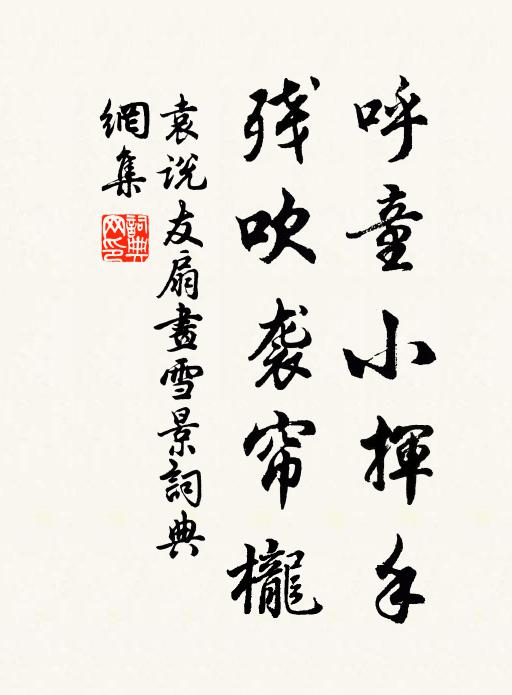 呼童小揮手
残吹袭帘櫳
袁说友扇畫雪景詞典
網集
詞典网印